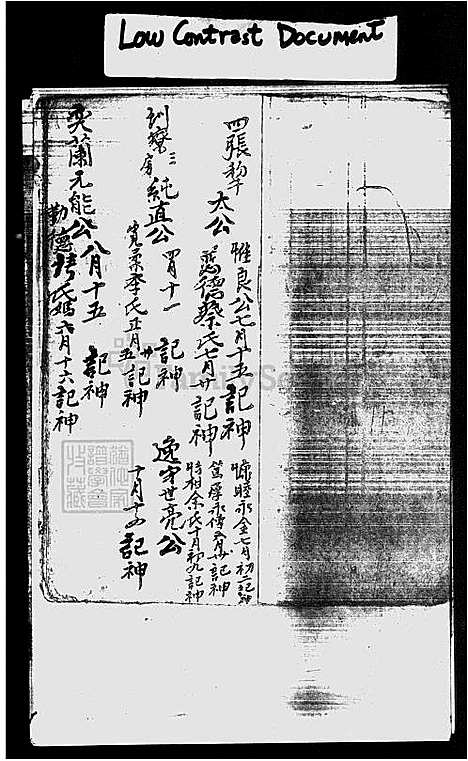 Low Contrast Document
四張犂
太公
雅良公七月十五記神
慈德蔡氏七月廿記神
慷睦永金七月初二記神
篤厚永傳五月廿記神
特柑余氏十月初九記神
訓蒙三房純直公
四月十一記神
寬柔李氏正月廿五記神
逸宇世亮公
十月十四記神
奕蘭元能公八月十五記神
勤德張氏媽六月十六記神